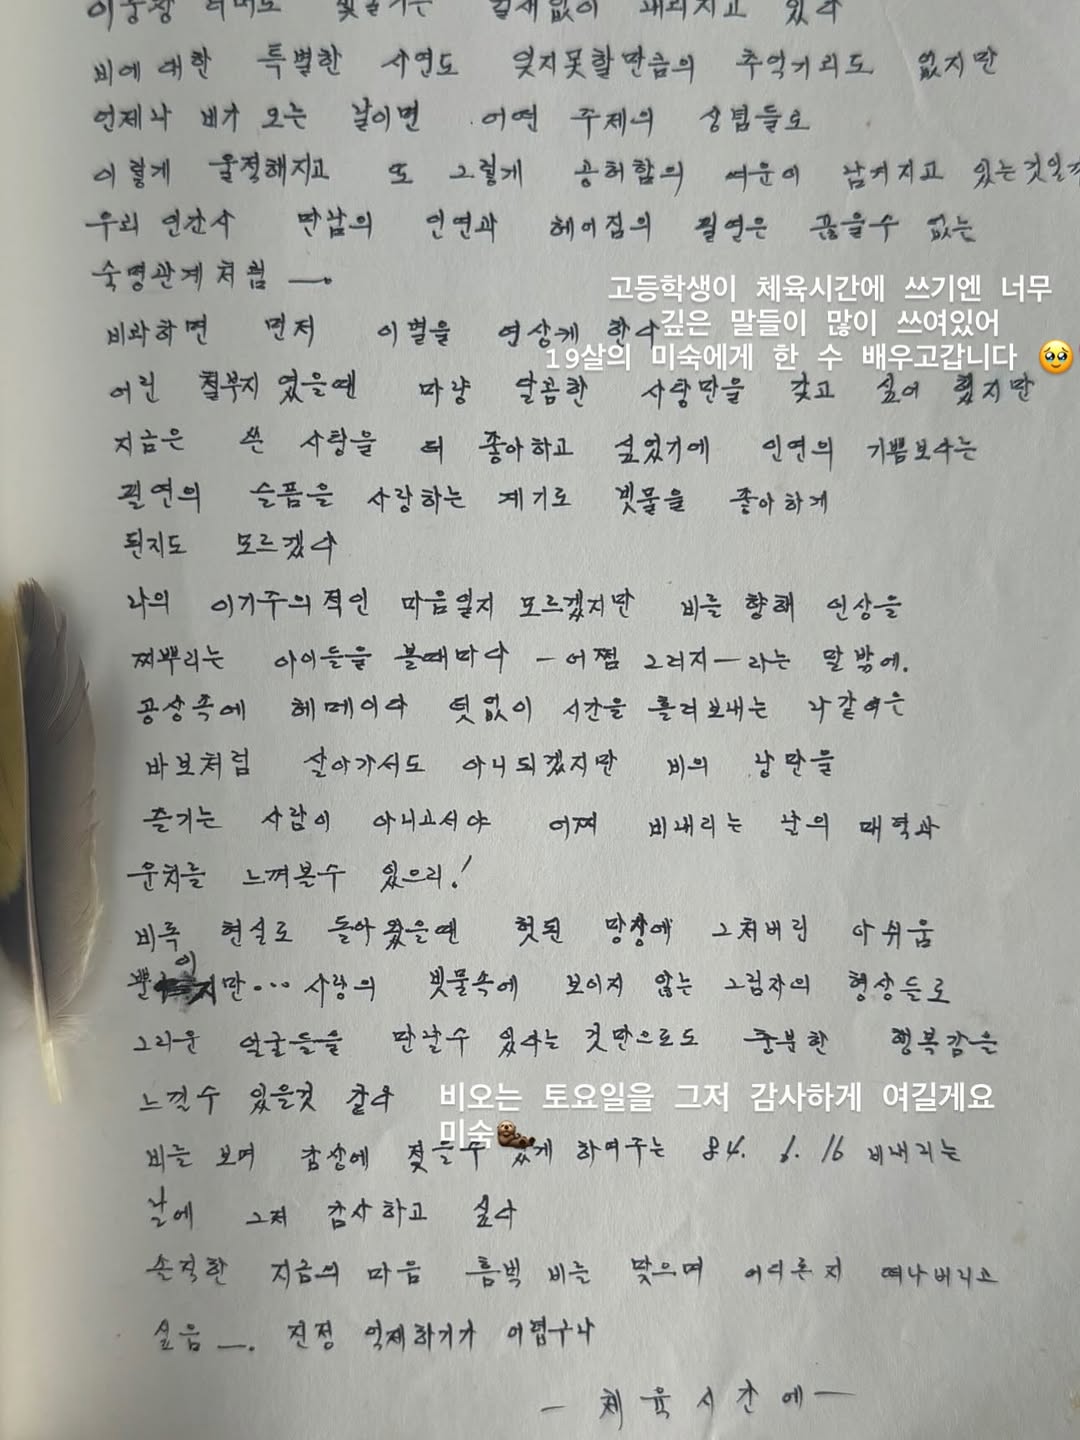 비에 대한 특별한 사연도 잊지못할만큼의 추억거리도 없지만
언제나 비가 오는 날이면 어떤 주제의 상념들로
이렇게 울적해지고 또 그렇게 공허함의 여운이 남겨지고 있는것일까
우리 인간사 만남의 인연과 헤어짐의 필연은 끊을수 없는
숙명관계처럼 —.
고등학생이 체육시간에 쓰기엔 너무
깊은 말들이 많이 쓰여있어
19살의 미숙에게 한 수 배우고갑니다 🥹
비와하면 먼저 이별을 연상케 한다
어린 철부지 였을땐 마냥 달콤한 사탕만을 갖고 싶어 했지만
지금은 쓴 사탕을 더 좋아하고 싶었기에 인연의 기쁨보다는
필연의 슬픔을 사랑하는 계기로 빗물을 좋아하게
된지도 모르겠다
나의 이기주의적인 마음일지 모르겠지만 비를 향해 인상을
찌뿌리는 아이들을 볼때마다 — 어쩜 그러지 — 라는 말밖에.
공상속에 헤메이다 덧없이 시간을 흘려보내는 나같은
바보처럼 살아가서도 아니되겠지만 비의 낭만을
즐기는 사람이 아니고서야 어찌 비내리는 날의 매력과
운치를 느껴볼수 있으리!
비록 현실로 돌아왔을땐 헛된 망상에 그쳐버린 아쉬움
뿐이지만... 사랑의 빗물속에 보이지 않는 그림자의 형상들로
그리운 얼굴들을 만날수 있다는 것만으로도 충분한 행복감을
느낄수 있을것 같다
비오는 토요일을 그저 감사하게 여길게요
미숙🦦
비를 보며 감상에 젖을수 있게 하여주는 84. 6. 16 비내리는
날에 그저 감사하고 싶다
솔직한 지금의 마음 흠뻑 비를 맞으며 어디론지 떠나버리고
싶음 —. 진정 억제하기가 어렵구나
— 체육시간에 —